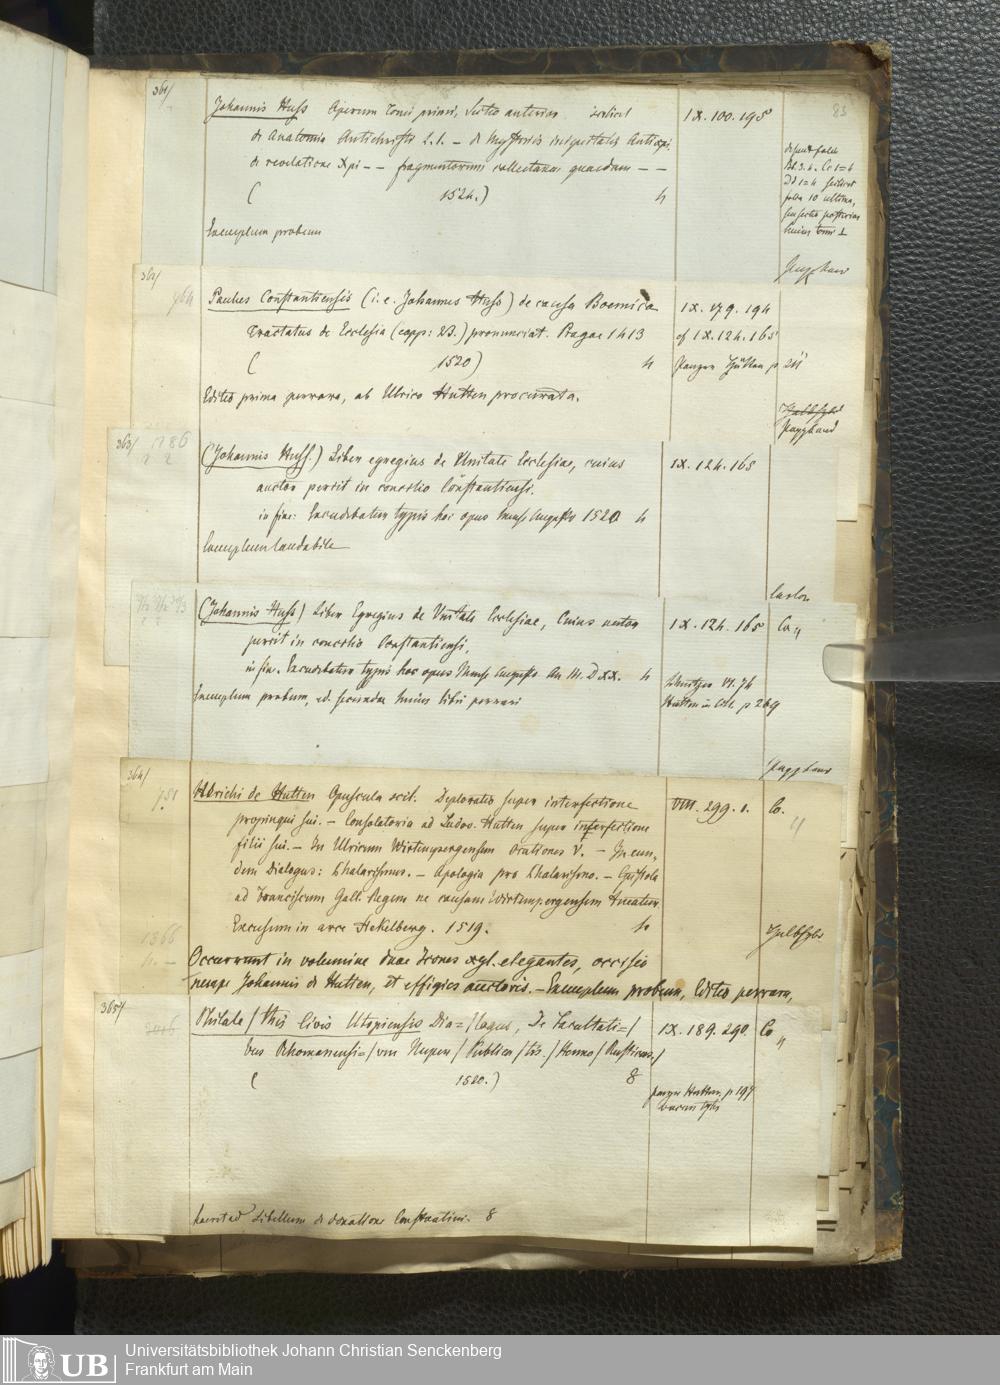 83
361/
Johannis Huss Operum Tomi primi, Sectio anterior scilicet
de Anatomia Antichristi L. 1. – de Mysteriis iniquitatis Antixpi.
de revelatione Xpi – – fragmentorum collectanea quaedam – –
( 1524.) 4
Exemplum probum
IX. 100. 195
folia 10 ultima,
Pappband
362/
Paulus Constantiensis (i. e. Johannes Huss) de causa Boemica
Tractatus de Ecclesia (capp: 23.) pronunciat. Pragae 1413
( 1520) 4
Editio prima perrara, ab Ulrico Hutten procurata.
IX. 179. 194
cf IX. 124. 165
Panzer Hutten p 211
Halbfzbd
Pappband
363/
(Johannis Huss.) Liber egregius de Unitate Ecclesiae, cuius
auctor periit in concilio Constantiensi.
in fine: Excudebatur typis hoc opus Mense Augusto 1520 4
Exemplum laudabile
IX. 124. 165
(Johannis Huss) Liber Egregius de Unitate Ecclesiae, Cuius autor
periit in concilio Constantiensi,
in fine. Excudebatur typis hoc opus Mense Augusto An M. D XX. 4
Exemplum probum, ed. secundae huius libri perrari
IX. 124. 165
Co. "
p 269
Pappband
364/
751
Ulrichi de Hutten Opuscula scil. Deploratio super interfectione
propinqui sui. – Consolatoria ad Ludov. Hutten super interfectione
filii sui. – In Ulricum Wirtempergensem orationes V. – In eun-
dem Dialogus: Phalarismus. – Apologia pro Phalarismo. – Epistola
ad Franciscum Gall. Regem ne causam Wirtempergensem tueatur
Excusum in arce Stekelberg. 1519. 4
Occurrunt in volumine duae Icones xyl. elegantes, occisio
nempe Johannis de Hutten, et effigies auctoris. – Exemplum probum, Editio perrara,
VIII. 299. 1.
Co.
Halbfzbd
1366
365/
Philale / this Civis Utopiensis Dia= / logus, De Facultati= /
bus Rhomanensi= / um Nuper / Publica / tis. / Henno / Rusticus. /
( 1520.) 8
IX. 189. 290.
Co "
Panzer Hutten p 197
haeret ad Libellum de donatione Constantini. 8
UB
Universitätsbibliothek Johann Christian Senckenberg
Frankfurt am Main